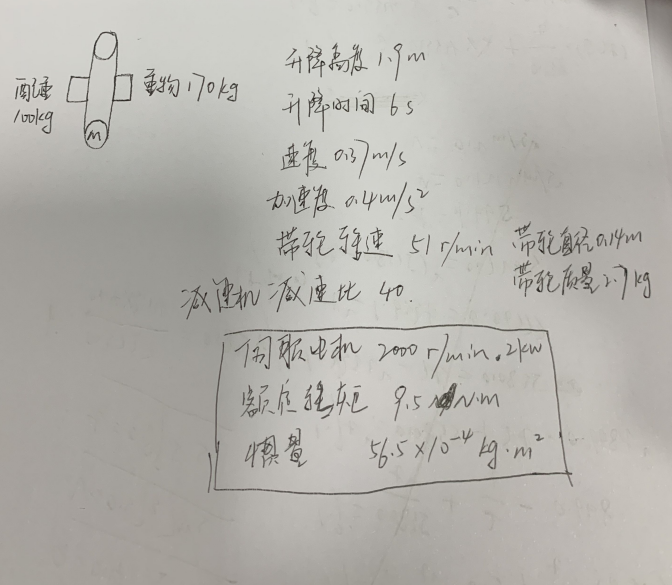 升降高度 1.9m
配重 重物170kg
100kg
M
升降时间 6s
速度 0.37m/s
加速度 0.4m/s²
带轮转速 51r/min 带轮直径0.14m
带轮质量2.7kg
减速机减速比 40.
伺服电机 2000r/min.2kw
额定转矩 9.5N.m
惯量 56.5×10⁻⁴kg.m²